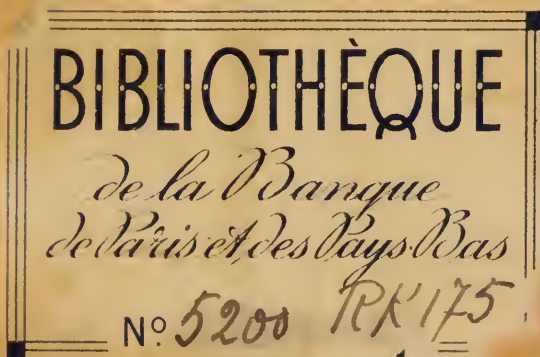 BIBLIOTHÈQUE
de la Banque
de Paris et des Pays-Bas
Nº 5200 RK175